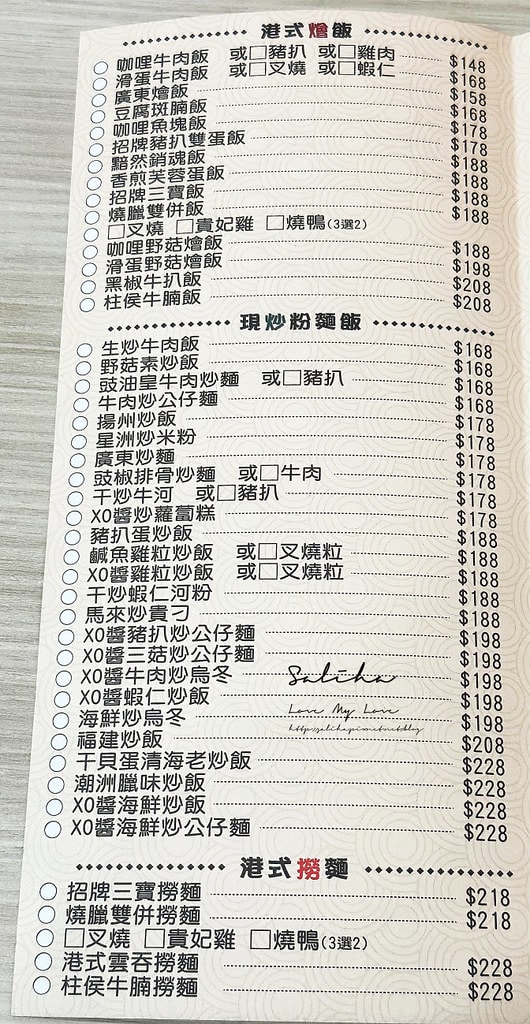 港式燴飯
咖哩牛肉飯 或□豬扒 或□雞肉 $148
滑蛋牛肉飯 或□叉燒 或□蝦仁 $168
廣東燴飯 $158
豆腐斑腩飯 $168
咖哩魚塊飯 $178
招牌豬扒雙蛋飯 $178
黯然銷魂飯 $188
香煎芙蓉蛋飯 $188
招牌三寶飯 $188
燒臘雙併飯 $188
□叉燒 □貴妃雞 □燒鴨(3選2)
咖哩野菇燴飯 $188
滑蛋野菇燴飯 $198
黑椒牛扒飯 $208
柱侯牛腩飯 $208
現炒粉麵飯
生炒牛肉飯 $168
野菇素炒飯 $168
豉油皇牛肉炒麵 或□豬扒 $168
牛肉炒公仔麵 $168
揚州炒飯 $178
星洲炒米粉 $178
廣東炒麵 $178
豉椒排骨炒麵 或□牛肉 $178
干炒牛河 或□豬扒 $178
XO醬炒蘿蔔糕 $178
豬扒蛋炒飯 $188
鹹魚雞粒炒飯 或□叉燒粒 $188
XO醬雞粒炒飯 或□叉燒粒 $188
干炒蝦仁河粉 $188
馬來炒貴刁 $188
XO醬豬扒炒公仔麵 $198
XO醬三菇炒公仔麵 $198
XO醬牛肉炒烏冬 $198
XO醬蝦仁炒飯 $198
海鮮炒烏冬 $198
福建炒飯 $208
干貝蛋清海老炒飯 $228
潮洲臘味炒飯 $228
XO醬海鮮炒飯 $228
XO醬海鮮炒公仔麵 $228
Saliha
Love My Love
港式撈麵
招牌三寶撈麵 $218
燒臘雙併撈麵 $218
□叉燒 □貴妃雞 □燒鴨(3選2)
港式雲吞撈麵 $228
柱侯牛腩撈麵 $228